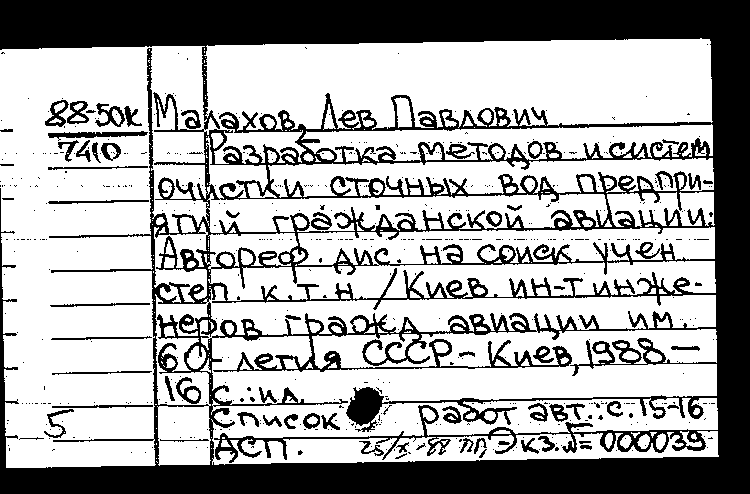 88-50к Малахов, Лев Павлович
7410 Разработка методов и систем
очистки сточных вод предпри-
ятий гражданской авиации:
Автореф. дис. на соиск. учен
степ. к.т.н / Киев. ин-т инже-
неров гражд. авиации им.
60-летия СССР.- Киев, 1988.-
16 с.: ил.
5 Список работ авт.: с. 15-16
ДСП. 25/X-88 Экз. № 000039